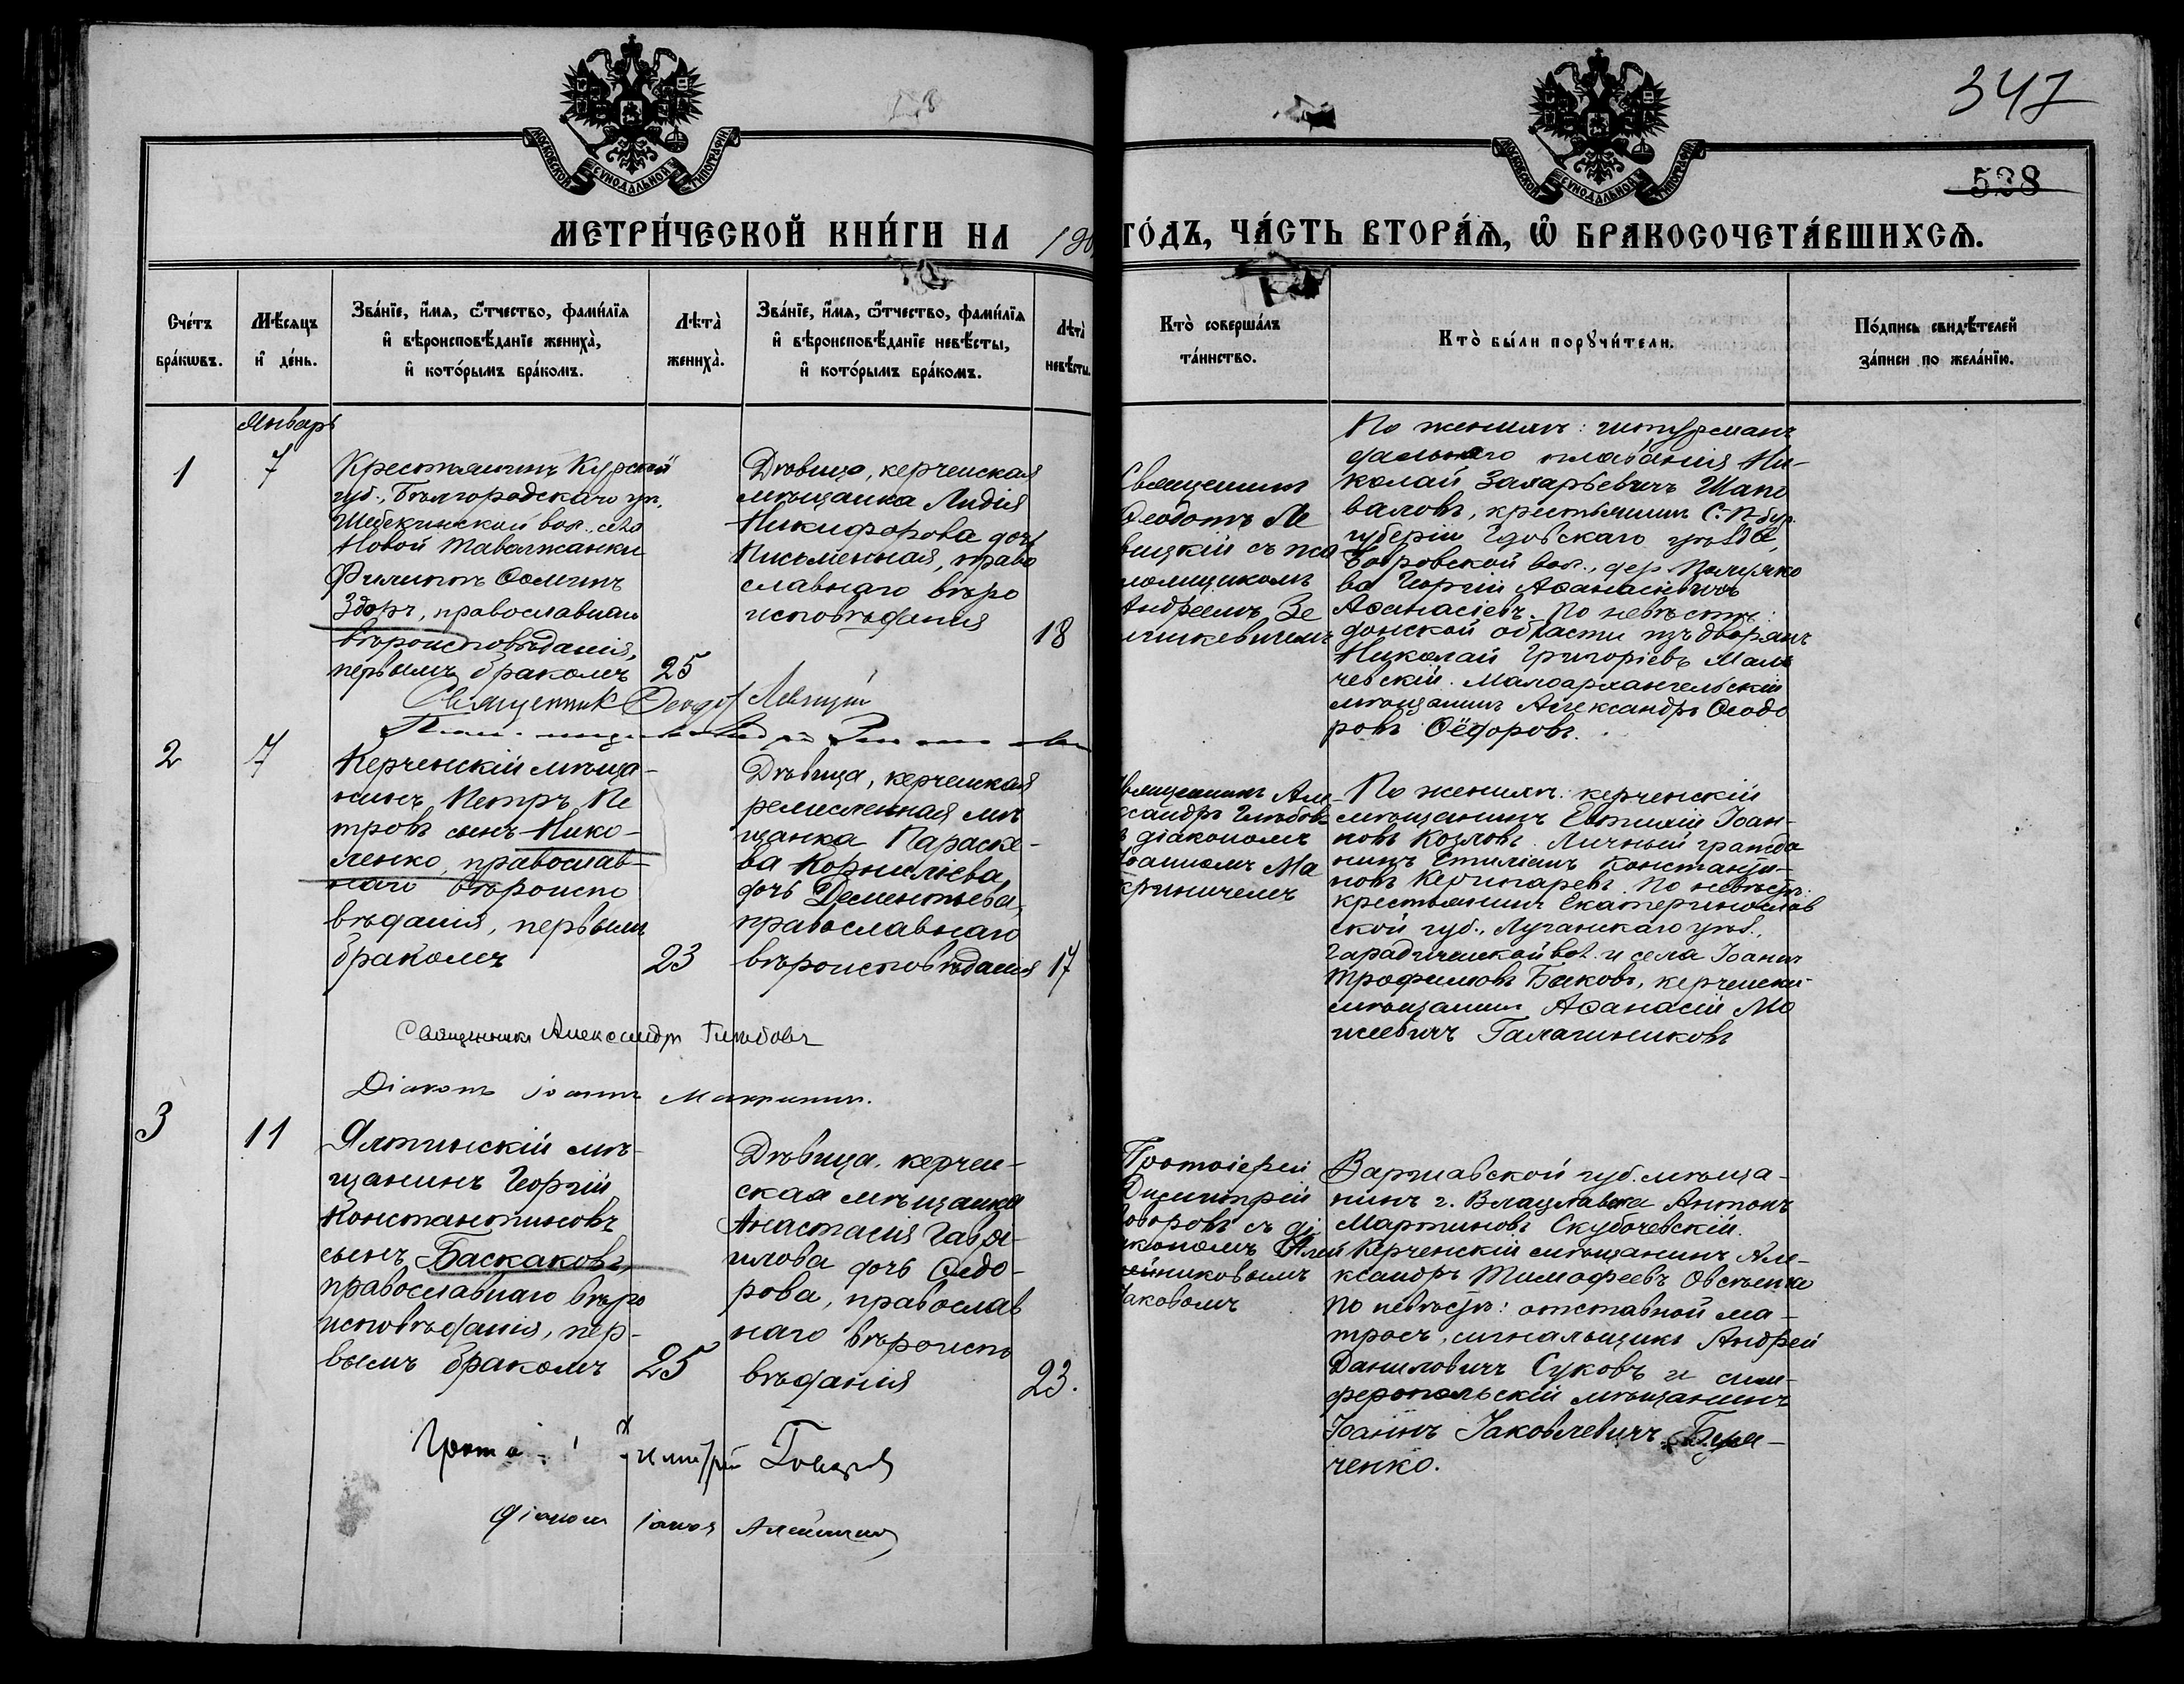 347
528
МОСКОВСКОЙ СУНОДАЛЬНОЙ ТИПОГРАФІИ
МОСКОВСКОЙ СУНОДАЛЬНОЙ ТИПОГРАФІИ
МЕТРИ́ЧЕСКОЙ КНИ́ГИ НА 190
ГО́ДЪ, ЧА́СТЬ ВТОРА́Ѧ, Ѡ҆ БРАКОСОЧЕТА́ВШИХСѦ.
Сче́тъ
бра́кѡвъ.
Мѣ́сѧцъ
и҆ де́нь.
Зва́нїе, и҆́мѧ, ѻ҆́тчество, фами́лїѧ
и҆ вѣроисповѣ́данїе жениха̀,
и҆ кото́рымъ бра́комъ.
Лѣта̀
жениха̀.
Зва́нїе, и҆́мѧ, ѻ҆́тчество, фами́лїѧ
и҆ вѣроисповѣ́данїе невѣ́сты,
и҆ кото́рымъ бра́комъ.
Лѣта̀
невѣ́сты.
Кто̀ соверша́лъ
та́инство.
Кто̀ бы́ли порꙋчи́тели.
По́дпись свидѣ́телей
за́писи по жела́нїю.
Январь
1
7
Крестьянинъ Курской
губ., Бѣлгородскаго уѣ.
Шебекинской вол., села
Новой Таволжанки
Филиппъ Ѳоминъ
Здоръ, православнаго
вѣроисповѣданія,
первымъ бракомъ
25
Дѣвица, керченская
мѣщанка Лидія
Никифорова дочь
Письменная, право
славнаго вѣро
исповѣданія
18
Священникъ
Ѳеодотъ Ле
вицкій съ пса
ломщикомъ
Андреемъ Зе
нькевичемъ
По женихѣ: штурманъ
дальняго плаванія Ни-
колай Захарьевичъ Шапо
валовъ, крестьянинъ С.-П-бур.
губерніи Гдовскаго уѣзда,
вол., дер.
ва Георгій Аѳанасіевичъ
Аѳанасіевъ. По невѣстѣ:
донской области изъ дворянъ
Николай Григоріевъ Мали
чевскій. Малоархангельскій
мѣщанинъ Александръ Ѳеодо
ровъ Ѳёдоровъ.
Священникъ Ѳеодот Левицкій
2
7
Керченскій мѣща-
нинъ Петръ Пе
тровъ сынъ Нико-
ленко, православ-
наго вѣроиспо
вѣданія, первымъ
бракомъ
23
Дѣвица, керченская
ремесленная мѣ
щанка Параске-
ва Корнилiева,
дочь Дементьева,
православнаго
вѣроисповѣданія
17
вященникъ Але-
ксандръ Глѣбовъ
съ діакономъ
Іоанномъ Ма
криничемъ
По женихѣ: керченскій
мѣщанинъ Евтихій Іоан-
новъ Козловъ. Личный гражда
нинъ Емиліанъ Константи-
новъ. По невѣстѣ:
крестьянинъ Екатеринослав
ской губ., уѣз.,
вол. и села Іоаннъ
Трофимовъ Быковъ, керченскій
мѣщанинъ Аѳанасій Мо
исеевичъ Галагиниковъ
Священникъ Александръ Глѣбовъ
Діаконъ Іоаннъ Макринич.
3
11
Ялтинскій мѣ-
щанинъ Георгій
Константиновъ
сынъ Баскаковъ,
православнаго вѣро
исповѣданія, пер-
вымъ бракомъ
25
Дѣвица, керчен-
ская мѣщанка
Анастасія Гаврі-
илова дочь Ѳедо-
рова, православ
наго вѣроиспо
вѣданія
23.
Протоіерей
Димитрій
Говоровъ съ ді
акономъ Алей
никовымъ
Іаковомъ
Варшавской губ. мѣща-
нинъ г. Влацлавска Антонъ
Мартиновъ Скубачевскій.
Керченскій мѣщанинъ Але-
ксандръ Тимофеевъ Овсѣенко
По невѣстѣ: отставной ма-
тросъ, сигнальщикъ Андрей
Даниловичъ Суковъ и сим-
феропольскій мѣщанинъ
Іоаннъ Іаковлевичъ
ченко.
Димитрій Говоровъ
діаконъ Іаковъ Алейниковъ